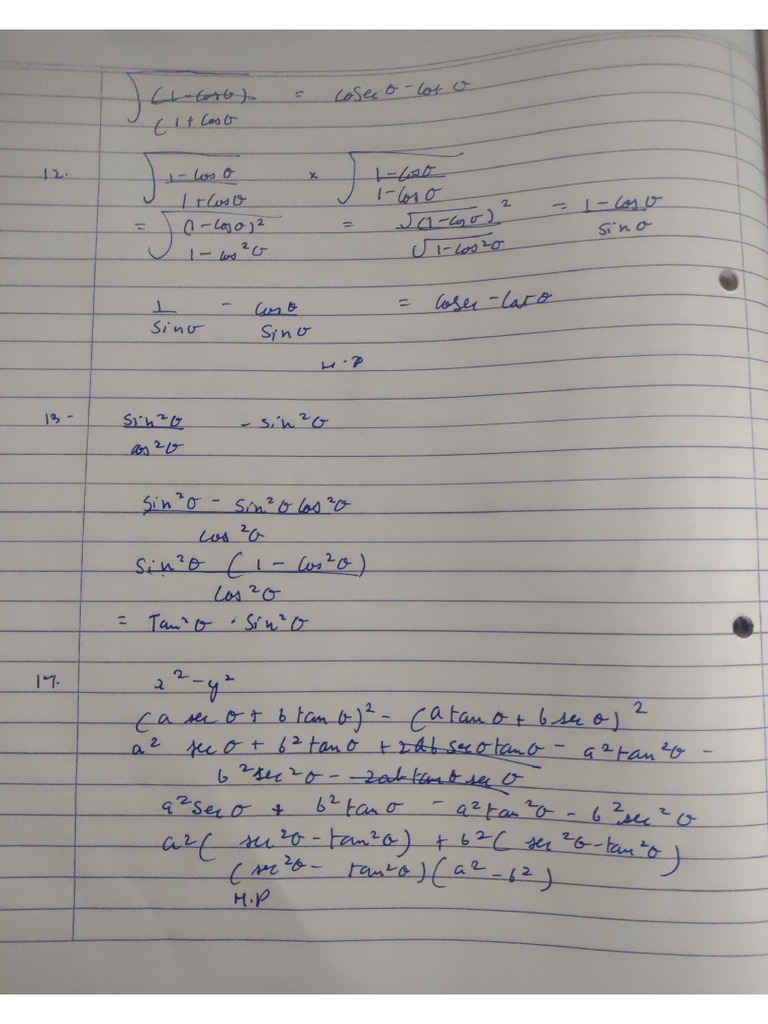 √(1-cosθ) = cosec θ - cot θ
(1+cosθ
12. √1-cosθ × √1-cosθ
1+cosθ 1-cosθ
= √(1-cosθ)² = √(1-cosθ)² = 1-cosθ
1-cos²θ √1-cos²θ sinθ
1 - cosθ = cosec - cotθ
sinθ sinθ
H.P
13- sin²θ - sin²θ
cos²θ
sin²θ - sin²θ cos²θ
cos²θ
sin²θ (1 - cos²θ)
cos²θ
= Tan²θ · Sin²θ
17. x² - y²
(a sec θ + b tan θ)² - (a tan θ + b sec θ)²
a² sec θ + b² tan θ + 2ab sec θ tan θ - a² tan²θ -
b² sec²θ - 2ab tan θ sec θ
a² sec θ + b² tan θ - a² tan²θ - b² sec²θ
a² ( sec²θ - tan²θ) + b² ( sec²θ - tan²θ)
(sec²θ - tan²θ) (a² - b²)
H.P